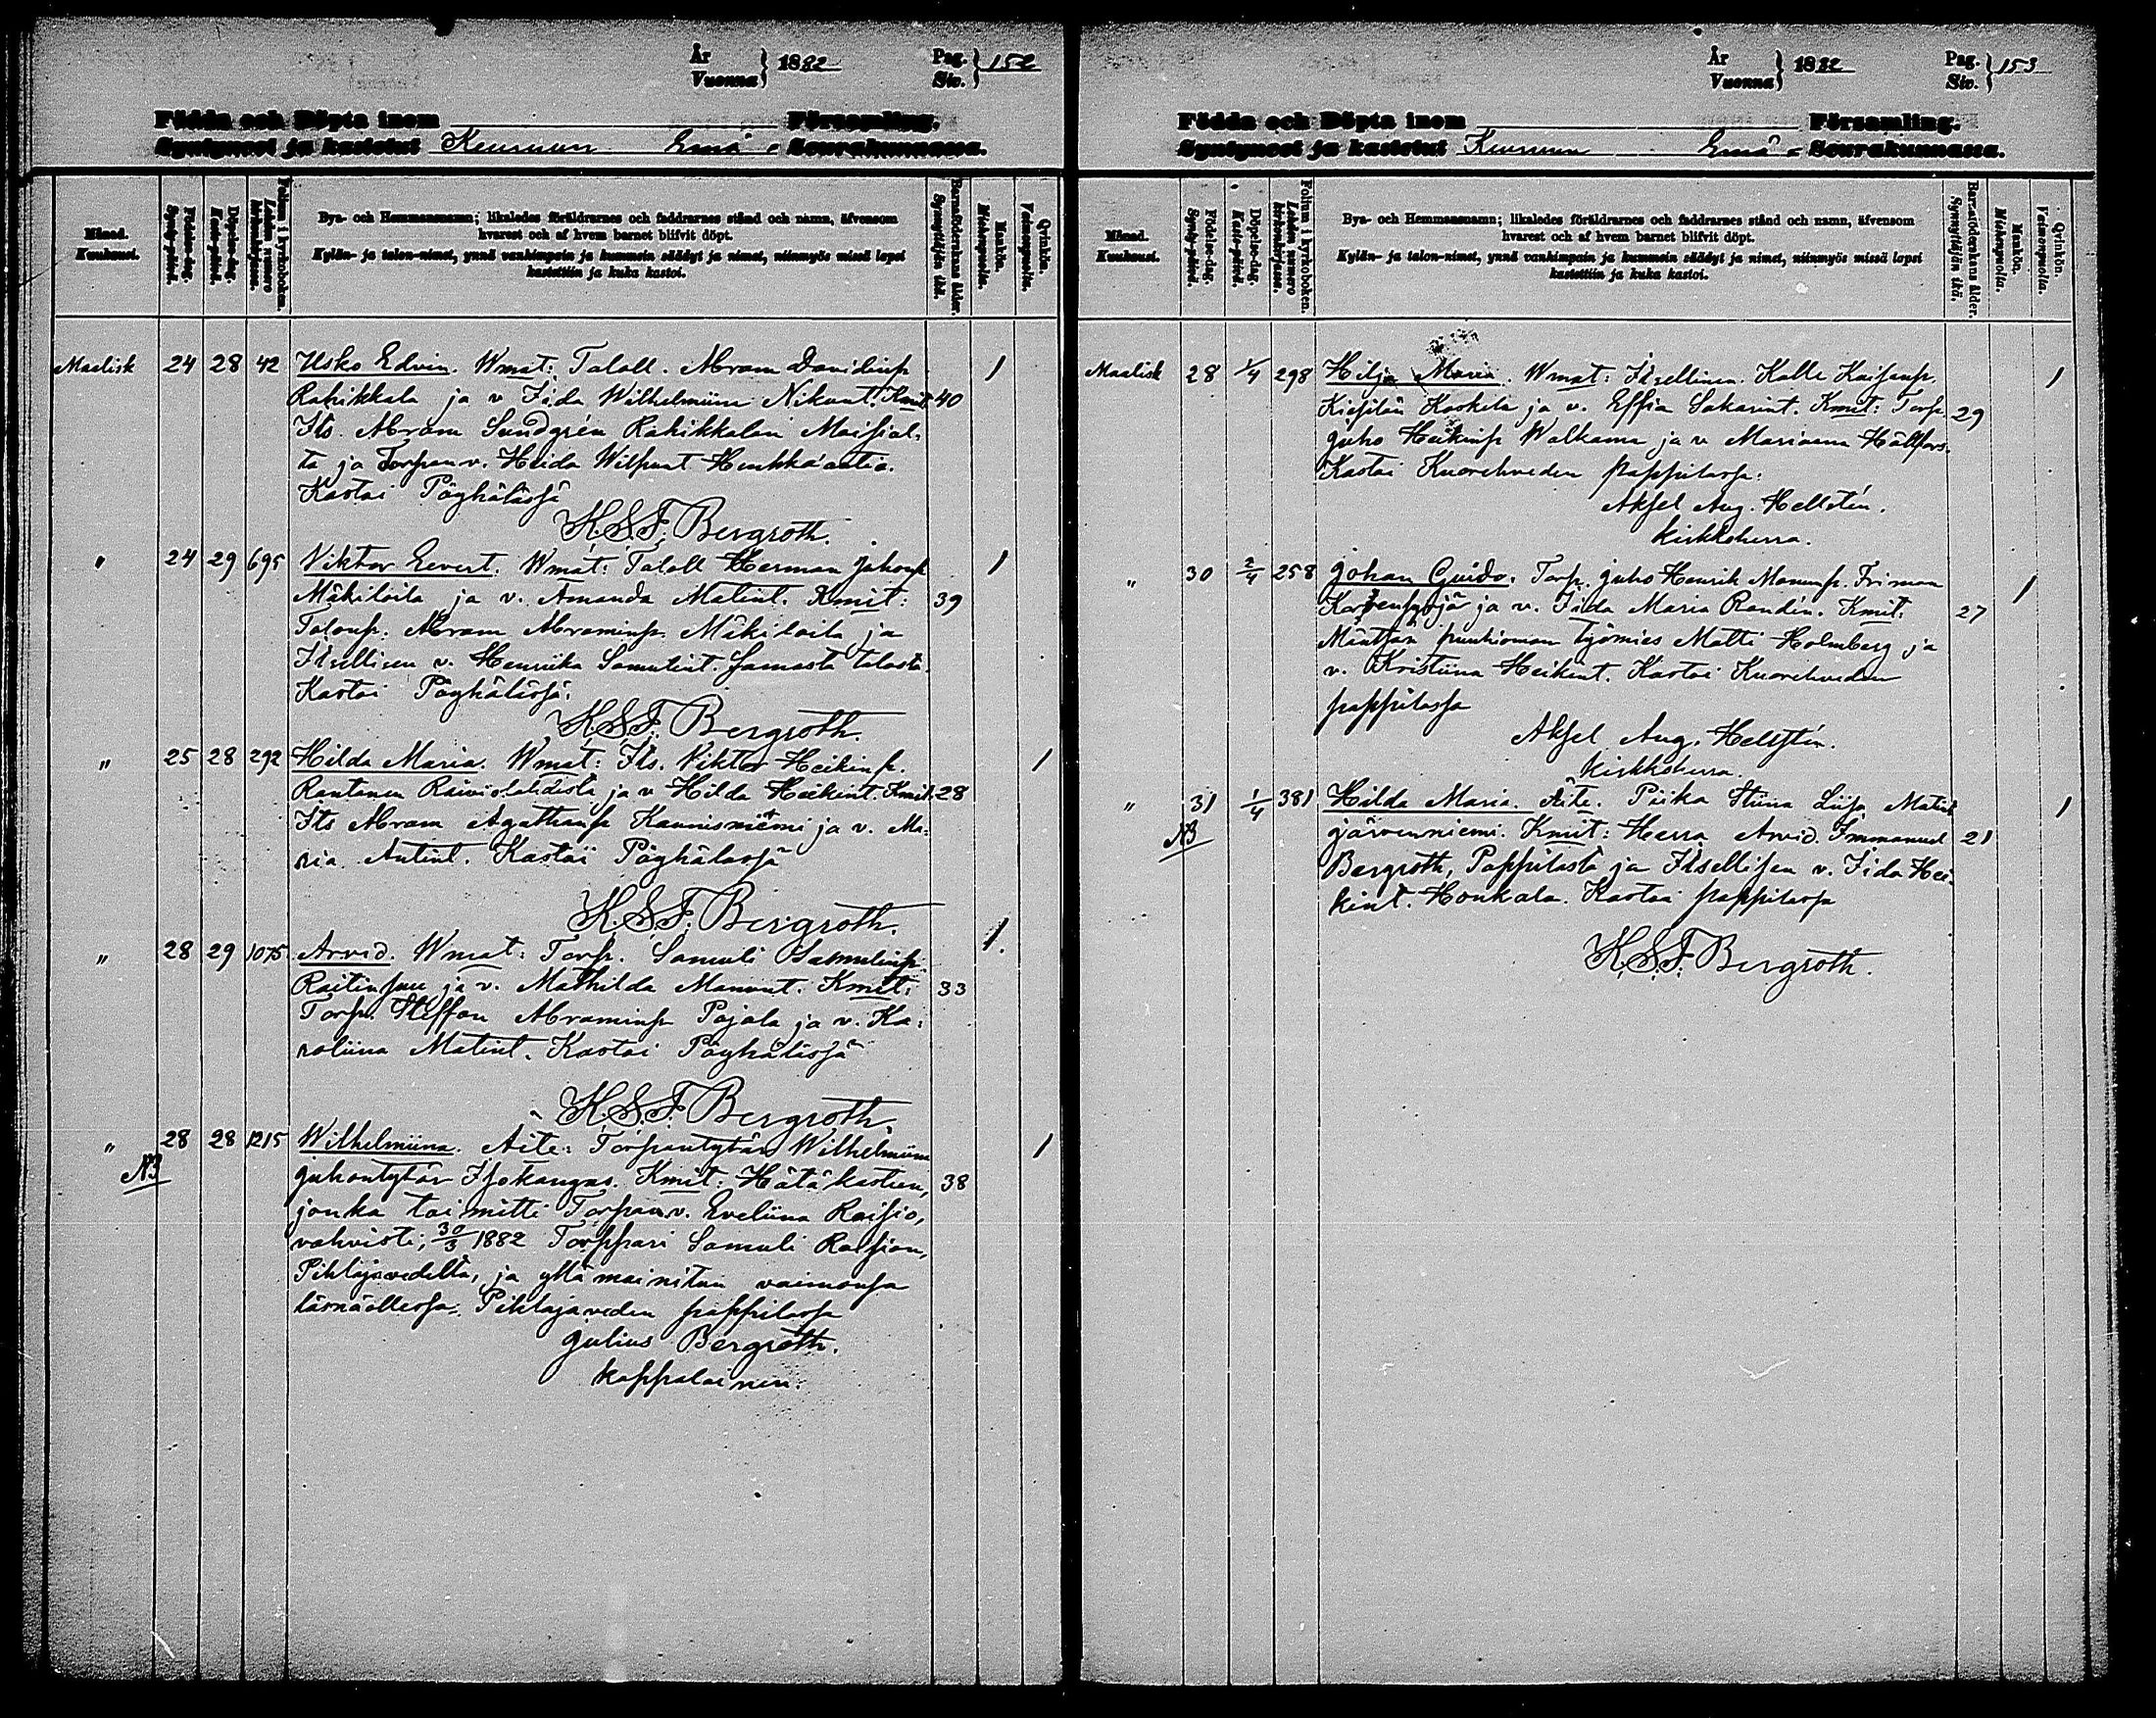 År
Vuonna } 1882
Pag.
Siv. } 152
Födda och Döpta inom Församling.
Syntyneet ja kastetut Keuruun Emä= Seurakunnassa.
Månad.
Kuukausi.
Födelse-dag.
Synty-päivä.
Döpelse-dag.
Kaste-päivä.
Folium i kyrkoboken.
Lehden numero
kirkonkirjassa.
Bya- och Hemmansnamn; likaledes föräldrarnes och faddrarnes stånd och namn, äfvensom
hvarest och af hvem barnet blifvit döpt.
Kylän- ja talon-nimet, ynnä vanhimpain ja kummein säädyt ja nimet, niinmyös missä lapsi
kastettiin ja kuka kastoi.
Barnaföderskans ålder.
Synnyttäjän ikä.
Mankön.
Miehenpuolia.
Qvinkön.
Vaimonpuolia.
Maalisk 24 28 42 Usko Edvin. Wmat: Taloll. Abram Davidinp 1
Rahikkala ja v Iida Wilhelmiina Nikunt. Kmit. 40
Its. Abram Sundgrén Rahikkalan Maisial=
ta ja Torpan v. Hkaatia.
Kastoi Pöyhölässä
K.S.F. Bergroth.
" 24 29 695 Viktor Evert. Wmat: Taloll Herman Johanp 1
Mäkiloila ja v. Amanda Matint. Kmit: 39
Talonp. Abram Abraminp. Mäkiloila ja
Itsellisen v. Henriika Samulint. samasta talosta.
Kastoi Pöyhölässä.
K.S.F. Bergroth.
" 25 28 292 Hilda Maria. Wmat: Its. Viktor Heikinp. 1
Rantanen ja v Hilda Heikint. Kmit. 28
Its Abram Agathanp Kaunisniemi ja v. Ma=
ria Antint. Kastoi Pöyhölässä
K.S.F. Bergroth.
" 28 29 1075 Arvid. Wmat: Torp. Samuli Samulinp 1.
Raitinpuu ja v. Mathilda Manunt. Kmit: 33
Torp. Steffan Abraminp Pajala ja v. Ka=
roliina Matint. Kastoi Pöyhölässä
K.S.F. Bergroth.
" 28 28 1215 Wilhelmiina. Äite: Torpantytär Wilhelmiina 1
NB Juhontytär Isokangas. Kmit: Hätäkasteen, 38
jonka toimitti Torpan v. Eveliina Raisio,
vahvisti, 30/3 1882 Torppari Samuli Raision,
Pihlajavedeltä, ja yllä mainitun vaimonsa
läsnäollessa. Pihlajaveden pappilassa
Julius Bergroth.
kappalainen.
År
Vuonna } 1882
Pag.
Siv. } 153
Födda och Döpta inom Församling.
Syntyneet ja kastetut Keuruun Emä= Seurakunnassa.
Månad.
Kuukausi.
Födelse-dag.
Synty-päivä.
Döpelse-dag.
Kaste-päivä.
Folium i kyrkoboken.
Lehden numero
kirkonkirjassa.
Bya- och Hemmansnamn; likaledes föräldrarnes och faddrarnes stånd och namn, äfvensom
hvarest och af hvem barnet blifvit döpt.
Kylän- ja talon-nimet, ynnä vanhimpain ja kummein säädyt ja nimet, niinmyös missä lapsi
kastettiin ja kuka kastoi.
Barnaföderskans ålder.
Synnyttäjän ikä.
Mankön.
Miehenpuolia.
Qvinkön.
Vaimonpuolia.
Maalisk 28 1/4 298 Hilja Maria. Wmat: Itsellinen. Kalle Kaisanp. 1
Koskela ja v. Effia Sakarint. Kmit: Torp. 29
Juho Heikinp Walkama ja v Mariana Hällfors.
Kastoi Kuorehveden pappilassa:
Aksel Aug. Hellstén.
kirkkoherra.
" 30 2/4 258 Johan Guido. Torp. Juho Henrik Manunp. Friman 1
ja v. Iida Maria Randén. Kmit. 27
Mäntän puuhioman Työmies Matti Holmberg ja
v. Kristiina Heikint. Kastoi Kuorehveden
pappilassa
Aksel Aug. Hellstén.
kirkkoherra.
" 31 1/4 381 Hilda Maria. Äite. Piika Stiina Liisa Matint 1
NB Järvenniemi. Kmit: Herra Arvid Immanuel 21
Bergroth, Pappilasta ja Itsellisen v. Iida Hei=
kint. Honkala. Kastoi pappilassa
K.S.F. Bergroth.